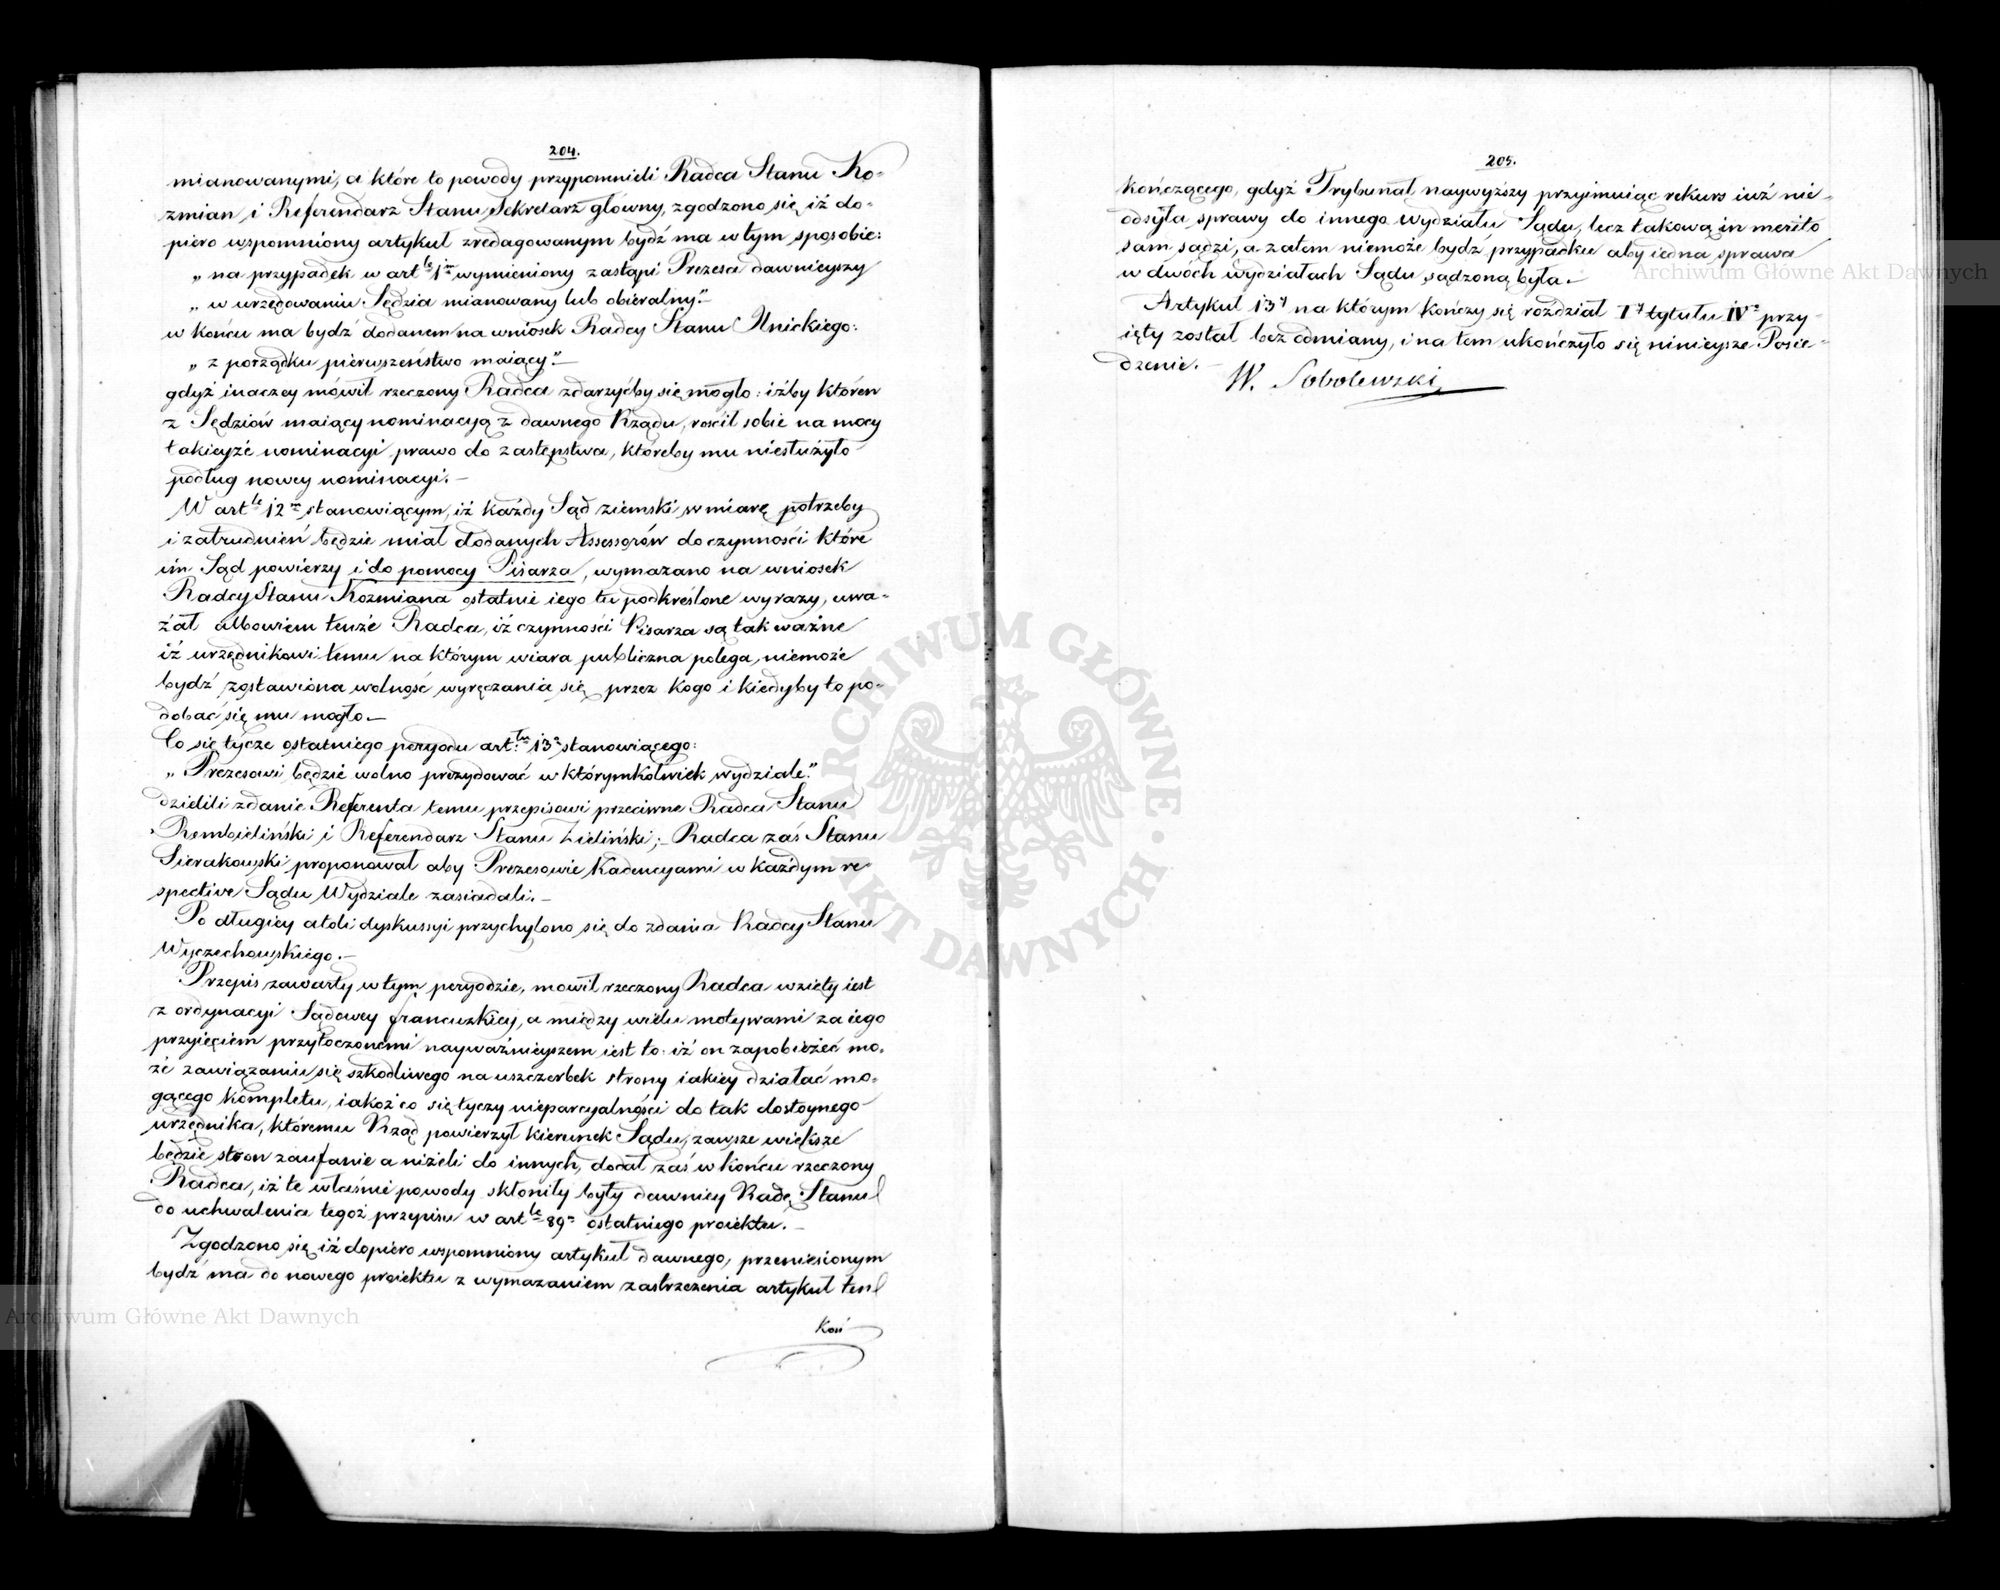 204.
mianowanymi, a które to powody przypomnieli Radca Stanu Ko-
zmian i Referendarz Stanu Sekretarz główny, zgodzono się iż do-
piero wspomniony artykuł zredagowanym bydź ma w tym sposobie:
„ na przypadek w art.le 1m wymieniony zastąpi Prezesa dawnieyszy
„ w urzędowaniu Sędzia mianowany lub obieralny."
w końcu ma bydź dodanem na wniosek Radcy Stanu Unickiego:
„ z porządku pierwszeństwo maiący."
gdyż inaczey mówił rzeczony Radca zdarzyćby się mogło: iżby któren
z Sędziów maiący nominacyą z dawnego Rządu, rościł sobie na mocy
takieyże nominacyi prawo do zastępstwa, któreby mu niesłużyło
podług nowey nominacyi. —
W art.le 12m stanowiącym, iż każdy Sąd ziemski w miarę potrzeby
i zatrudnień będzie miał dodanych Assessorów do czynności które
im Sąd powierzy i do pomocy Pisarza, wymazano na wniosek
Radcy Stanu Kozmiana ostatnie iego tu podkreślone wyrazy, uwa-
żał albowiem tenże Radca, iż czynności Pisarza są tak ważne
iż urzędnikowi temu na którym wiara publiczna polega, niemoże
bydź zostawiona wolność wyręczania się przez kogo i kiedyby to po-
dobać się mu mogło. —
Co się tycze ostatniego peryodu art.łu 13o stanowiącego:
„ Prezesowi będzie wolno prezydować w którymkolwiek wydziale."
dzielili zdanie Referenta temu przepisowi przeciwne Radca Stanu
Rembieliński i Referendarz Stanu Zieliński; Radca zaś Stanu
Sierakowski proponował aby Prezesowie Kadencyami w każdym re-
spective Sądu Wydziale zasiadali. —
Po długiey atoli dyskussyi przychylono się do zdania Radcy Stanu
Wyczechowskiego. —
Przepis zawarty w tym peryodzie, mówił rzeczony Radca wzięty iest
z ordynacyi Sądowey francuzkiey, a między wielu motywami za iego
przyięciem przytoczonemi nayważnieyszem iest to: iż on zapobieżeć mo-
że zawiązaniu się szkodliwego na uszczerbek strony iakiey działać mo-
gącego kompletu, iakoż co się tyczy nieparcyalności do tak dostoynego
urzędnika, któremu Rząd powierzył kierunek Sądu, zawsze większe
będzie stron zaufanie aniżeli do innych, dodał zaś w końcu rzeczony
Radca, iż te właśnie powody skłoniły były dawniey Radę Stanu
do uchwalenia tegoż przepisu w art.le 89m ostatniego proiektu. —
Zgodzono się iż dopiero wspomniony artykuł dawnego, przeniesionym
bydź ma do nowego proiektu z wymazaniem zastrzeżenia artykuł ten
Koń
205.
kończącego, gdyż Trybunał naywyższy przyimuiąc rekurs iuż nie-
odsyła sprawy do innego Wydziału Sądu, lecz takową in merito
sam sądzi, a zatem niemoże bydź przypadku aby iedna sprawa
w dwóch wydziałach Sądu sądzoną była. —
Artykuł 13y na którym kończy się rozdział Iy tytułu IVo przy-
ięty został bez odmiany, i na tem ukończyło się ninieysze Posie-
dzenie. —
W. Sobolewski
ARCHIWUM GŁÓWNE AKT DAWNYCH
Archiwum Główne Akt Dawnych
Archiwum Główne Akt Dawnych